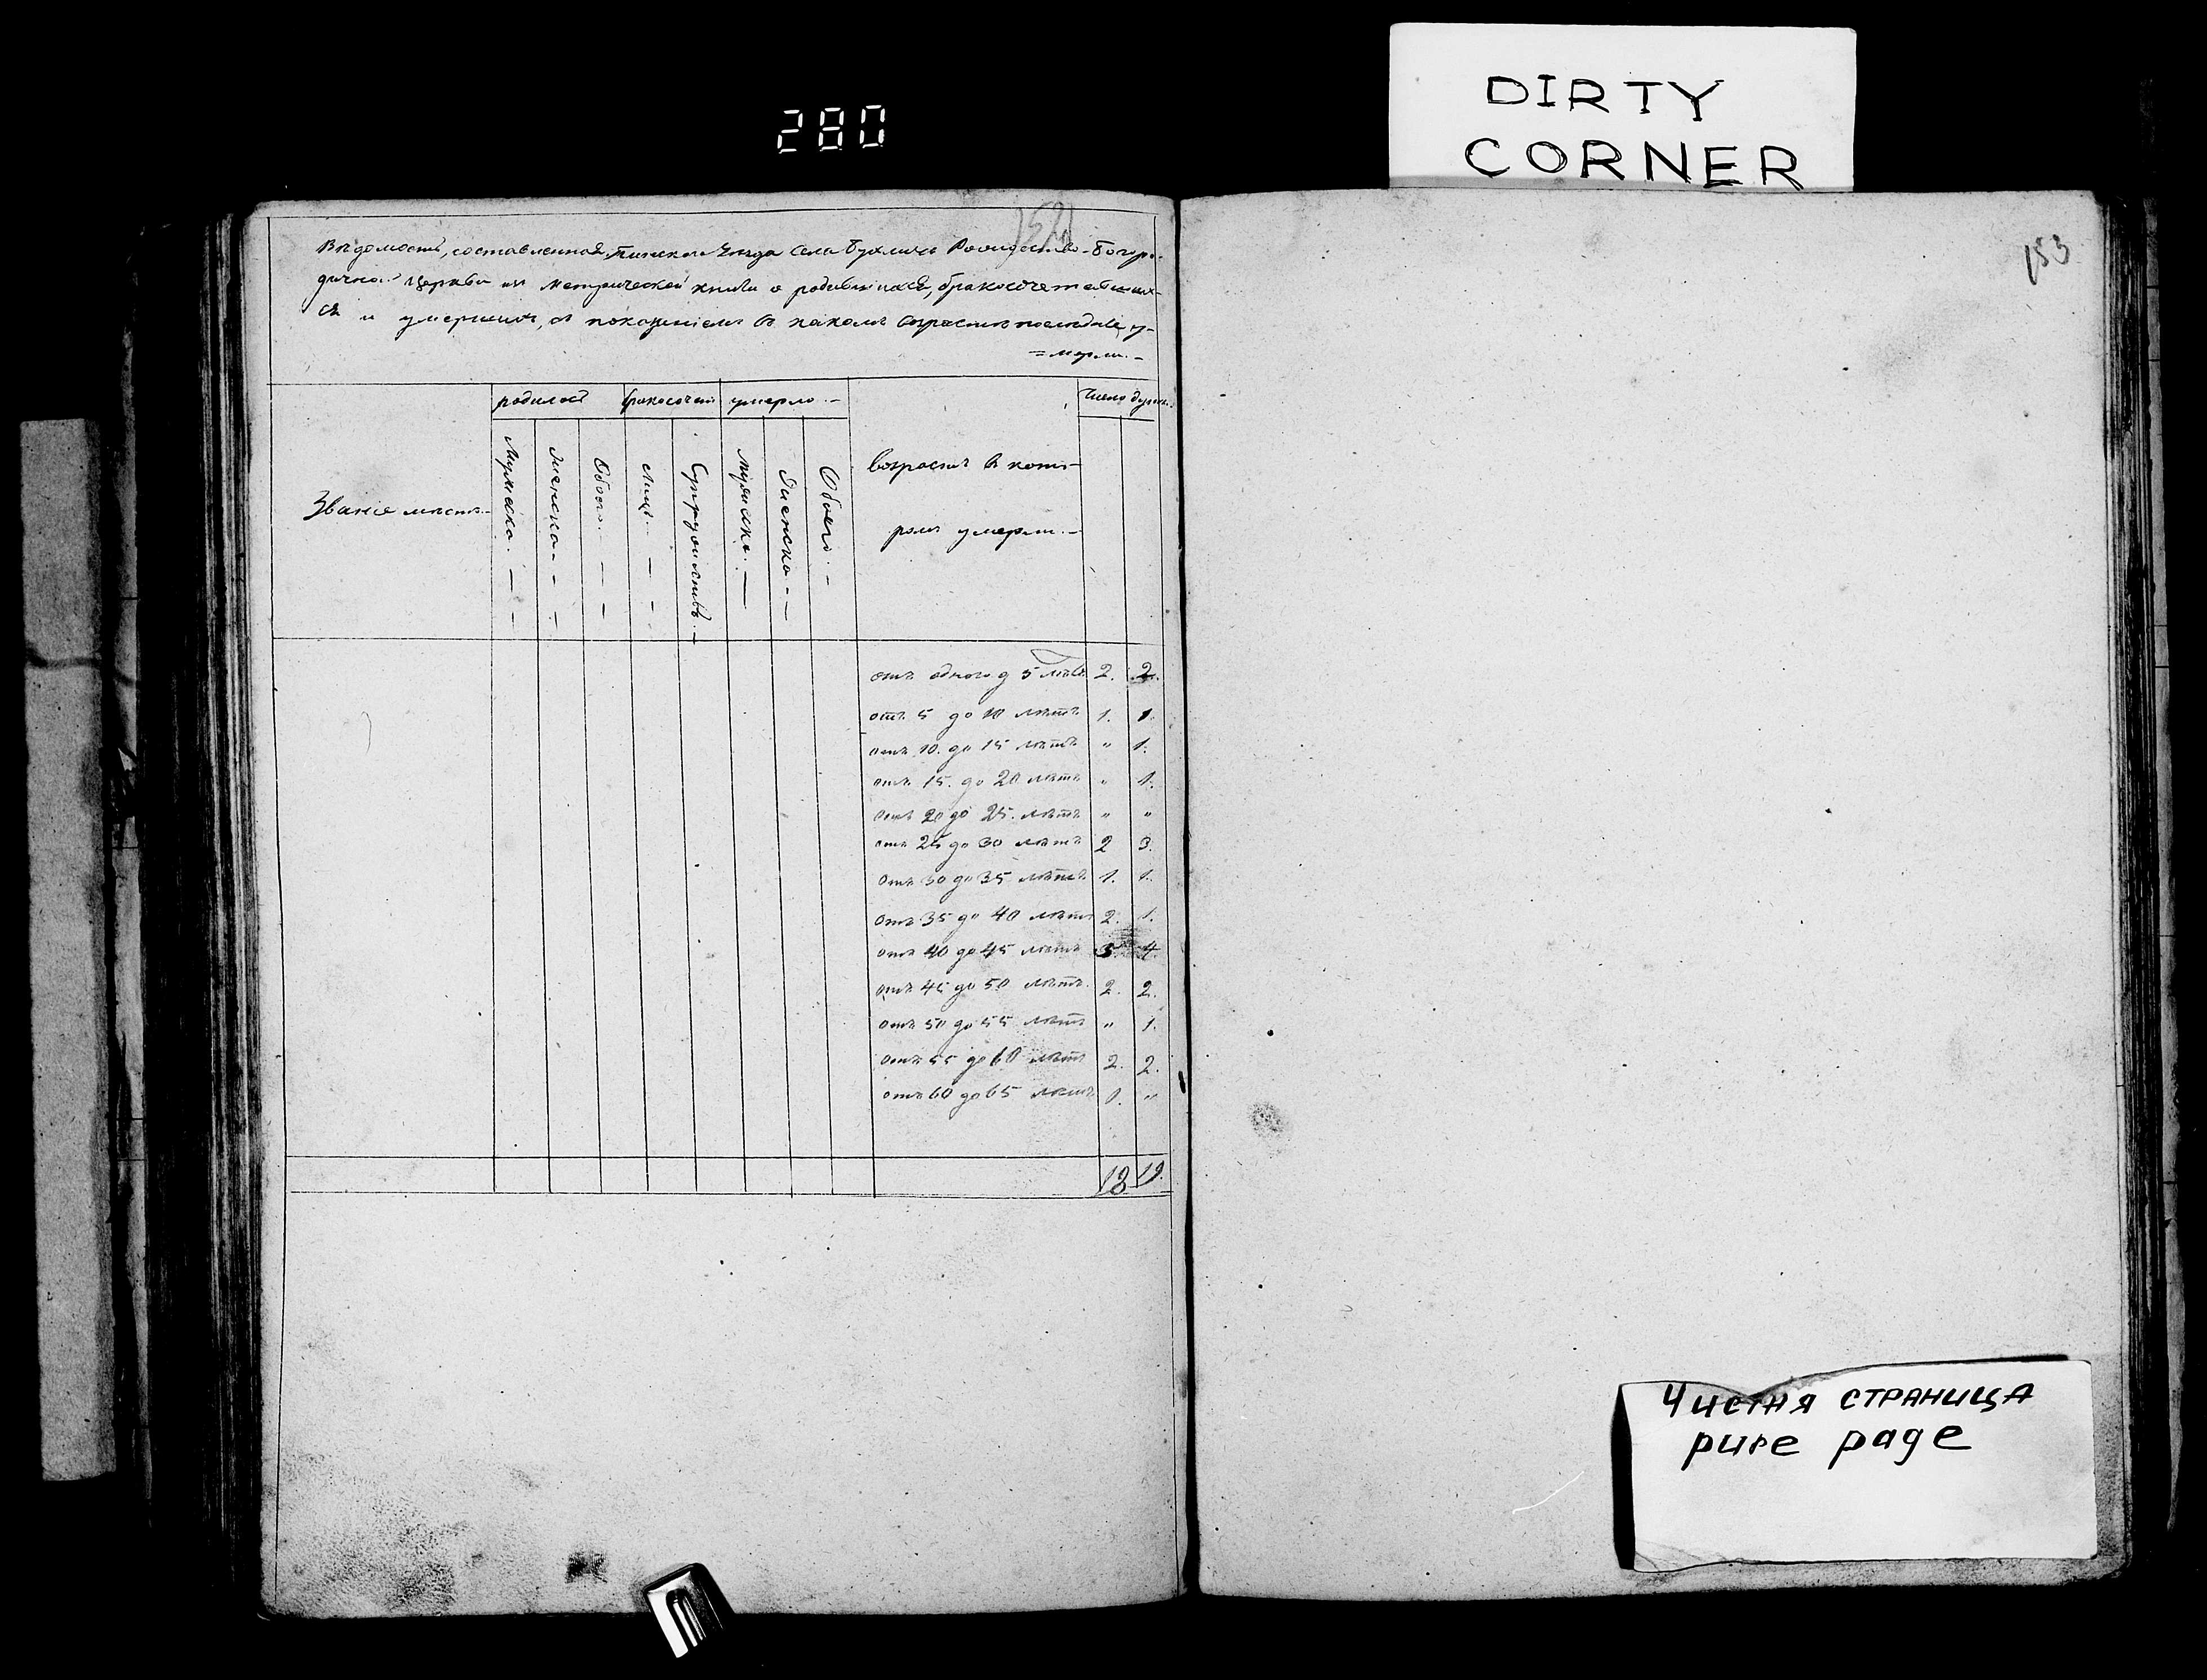 DIRTY
CORNER
280
153
Вѣдомость, составленная Пинскаго Уѣзда Села Бухличъ Рождество-Богоро-
дичной Церкви изъ метрической книги о родившихся, бракосочетавших-
ся и умершихъ, съ показаніемъ въ какомъ возрастѣ послѣдніе у-
=мерли.-
родилось бракосочет. умерло.- Число душъ.
Званіе мѣстъ.-
Мужеска.
женска.
Обоего.
лицъ.
Супружествъ.
мужеска.
женска.
Обоего.
возрастъ в кото-
ромъ умерли.-
отъ одного д 5 лѣтъ 2. 2.
отъ 5 до 10 лѣтъ 1. 1.
отъ 10. до 15 лѣтъ " 1.
отъ 15. до 20 лѣтъ " 1.
отъ 20 до 25. лѣтъ " "
отъ 25 до 30 лѣтъ 2 3.
отъ 30 до 35 лѣтъ 1. 1.
отъ 35 до 40 лѣтъ 2. 1.
отъ 40 до 45 лѣтъ 5 4.
отъ 45 до 50 лѣтъ 2. 2.
отъ 50 до 55 лѣтъ " 1.
отъ 55 до 60 лѣтъ 2. 2.
отъ 60 до 65 лѣтъ 1. "
18 19.
Чистая СТРАНИЦА
pure page